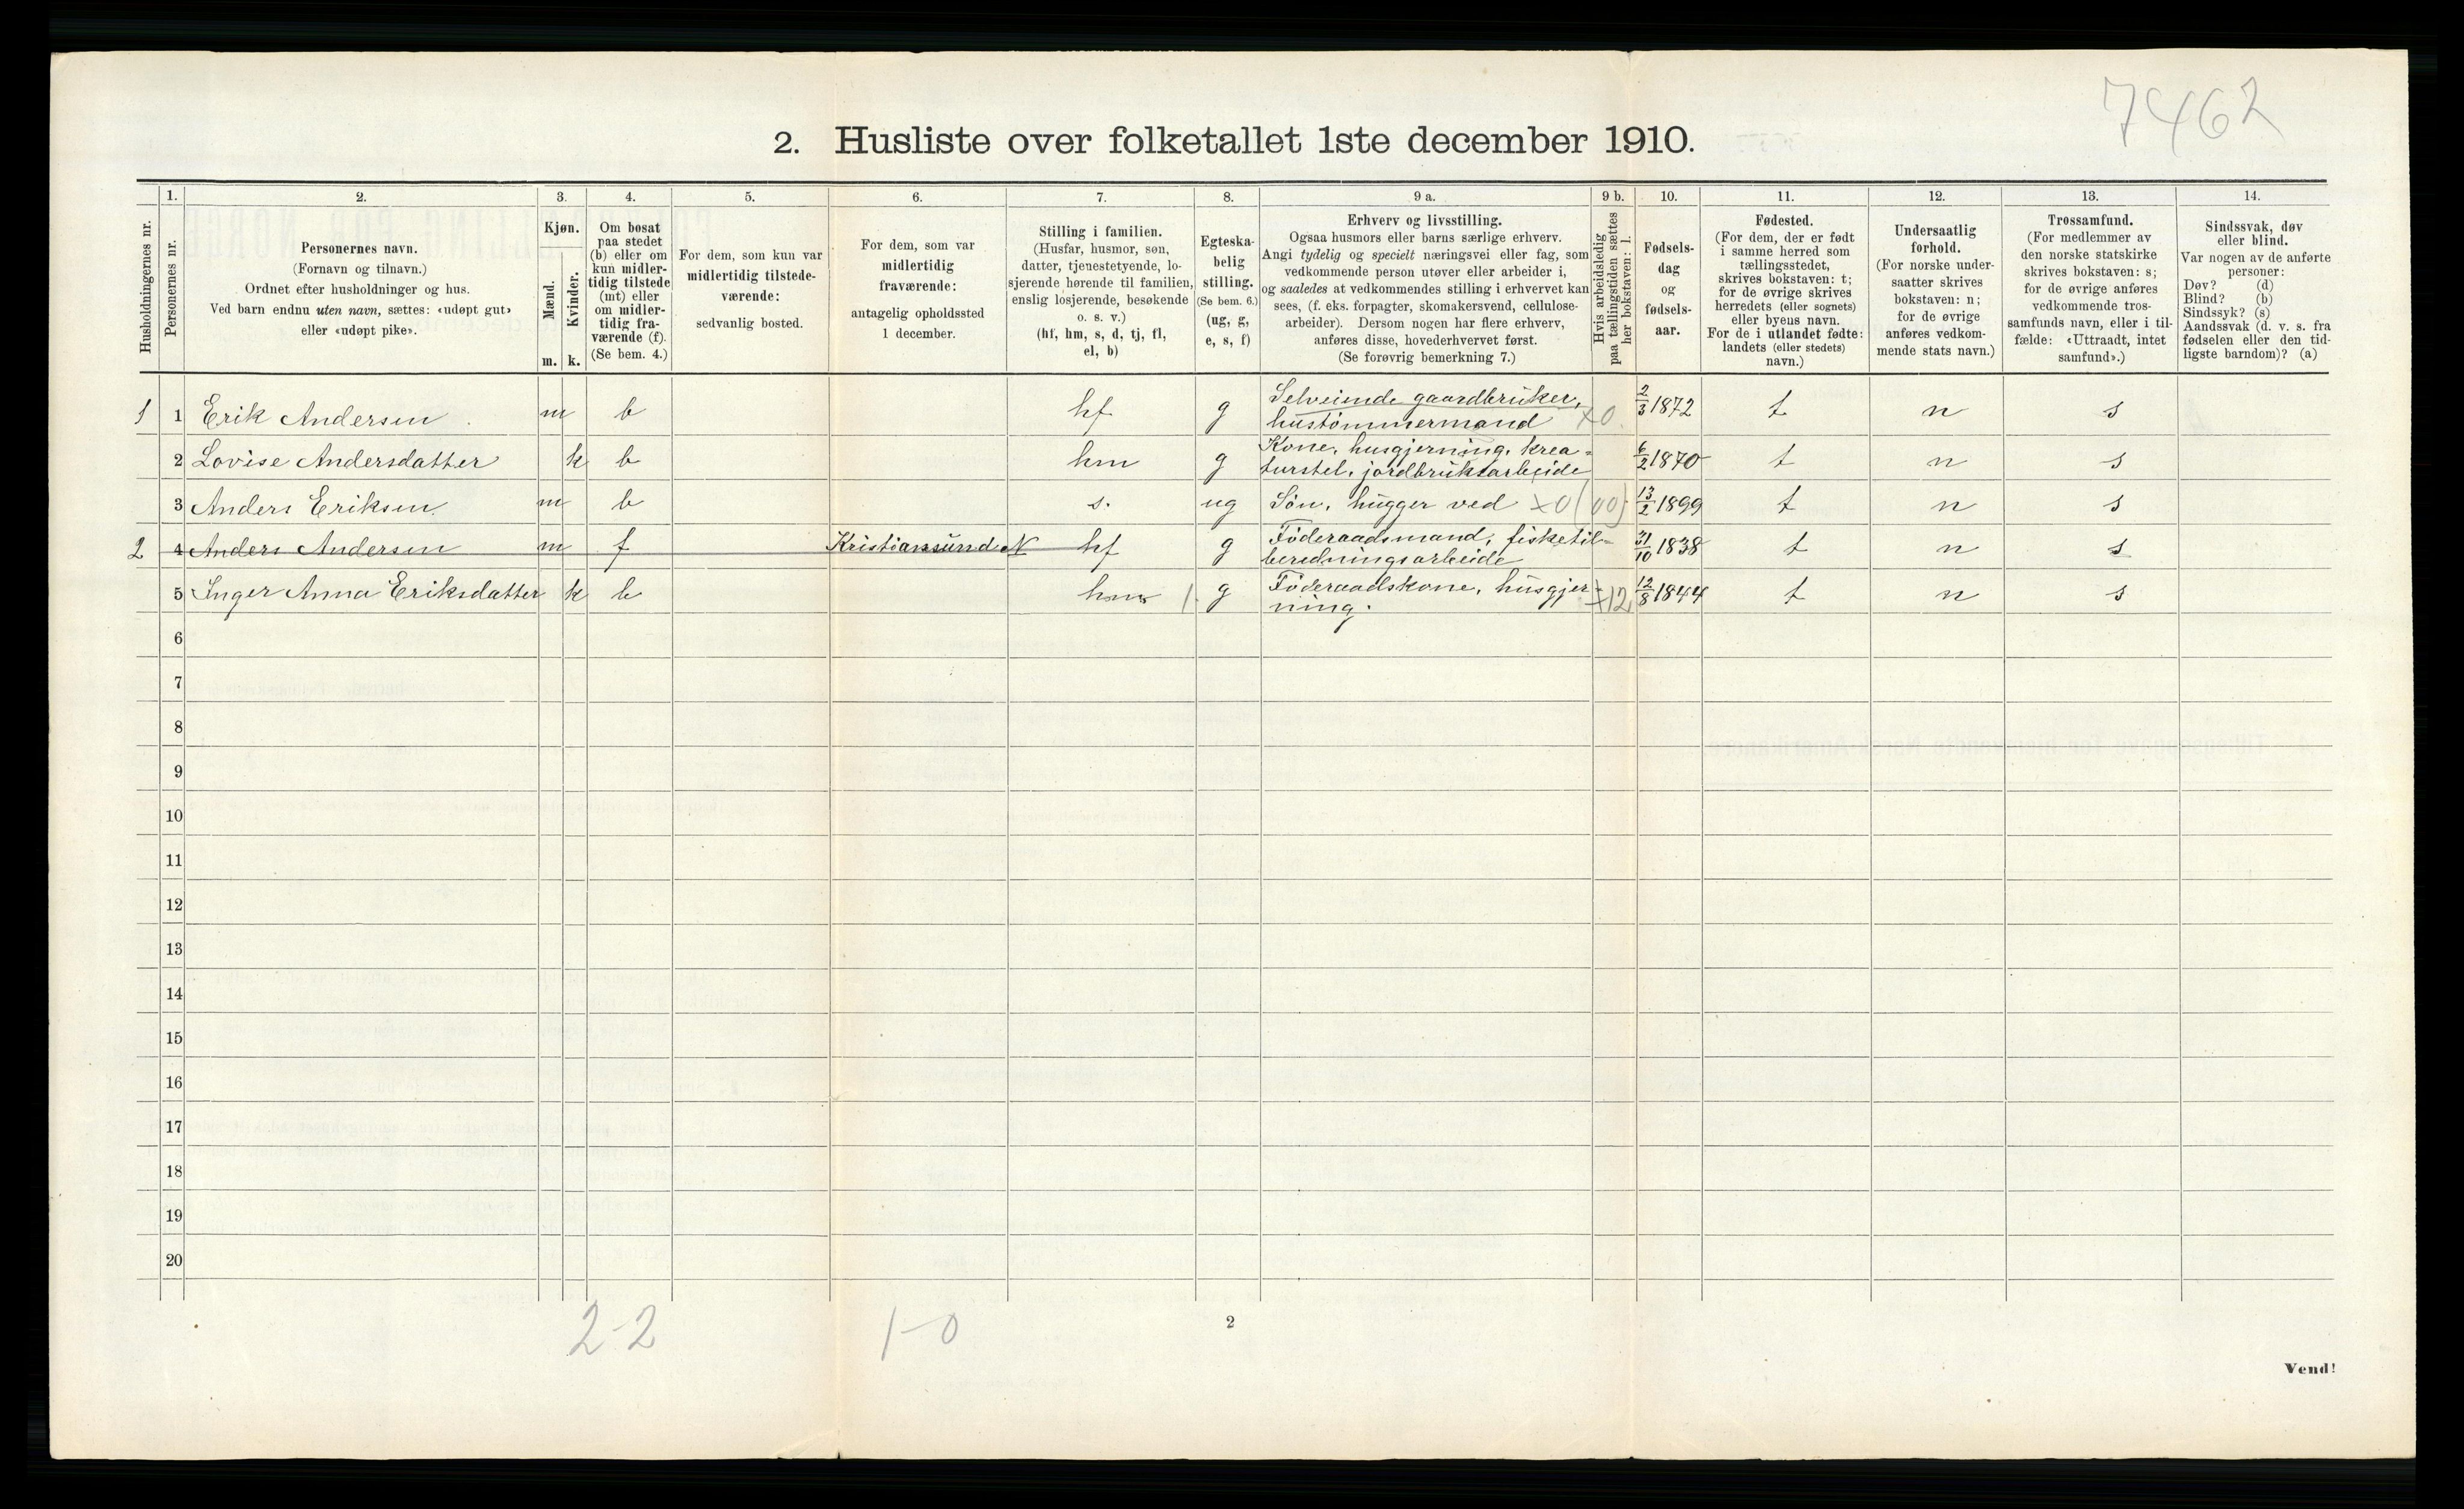 7462
2. Husliste over folketallet 1ste december 1910.
Husholdningernes nr.
1.
Personernes nr.
2.
Personernes navn.
(Fornavn og tilnavn.)
Ordnet efter husholdninger og hus.
Ved barn endnu uten navn, sættes: «udøpt gut»
eller «udøpt pike».
3.
Kjøn.
Mænd.
Kvinder.
m. k.
4.
Om bosat
paa stedet
(b) eller om
kun midler-
tidig tilstede
(mt) eller
om midler-
tidig fra-
værende (f).
(Se bem. 4.)
5.
For dem, som kun var
midlertidig tilstede-
værende:
sedvanlig bosted.
6.
For dem, som var
midlertidig
fraværende:
antagelig opholdssted
1 december.
7.
Stilling i familien.
(Husfar, husmor, søn,
datter, tjenestetyende, lo-
sjerende hørende til familien,
enslig losjerende, besøkende
o. s. v.)
(hf, hm, s, d, tj, fl,
el, b)
8.
Egteska-
belig
stilling.
(Se bem. 6.)
(ug, g,
e, s, f)
9 a.
Erhverv og livsstilling.
Ogsaa husmors eller barns særlige erhverv.
Angi tydelig og specielt næringsvei eller fag, som
vedkommende person utøver eller arbeider i,
og saaledes at vedkommendes stilling i erhvervet kan
sees, (f. eks. forpagter, skomakersvend, cellulose-
arbeider). Dersom nogen har flere erhverv,
anføres disse, hovederhvervet først.
(Se forøvrig bemerkning 7.)
9 b.
Hvis arbeidsledig
paa tællingstiden sættes
her bokstaven: l.
10.
Fødsels-
dag
og
fødsels-
aar.
11.
Fødested.
(For dem, der er født
i samme herred som
tællingsstedet,
skrives bokstaven: t;
for de øvrige skrives
herredets (eller sognets)
eller byens navn.
For de i utlandet fødte:
landets (eller stedets)
navn.)
12.
Undersaatlig
forhold.
(For norske under-
saatter skrives
bokstaven: n;
for de øvrige
anføres vedkom-
mende stats navn.)
13.
Trossamfund.
(For medlemmer av
den norske statskirke
skrives bokstaven: s;
for de øvrige anføres
vedkommende tros-
samfunds navn, eller i til-
fælde: «Uttraadt, intet
samfund».)
14.
Sindssvak, døv
eller blind.
Var nogen av de anførte
personer:
Døv? (d)
Blind? (b)
Sindssyk? (s)
Aandssvak (d. v. s. fra
fødselen eller den tid-
ligste barndom)? (a)
1 1 Erik Andersen m b hf g Selveiende gaardbruker, hustømmermand x0 2/3 1872 t n s
2 Lovise Andersdatter k b hm g Kone, husgjerning, krea= turstel, jordbruksarbeide 6/2 1870 t n s
3 Anders Eriksen m b s. ug Søn, hugger ved x0 (00) 13/2 1899 t n s
2 4 Anders Andersen m f Kristiansund N hf g Føderaadsmand, fisketil= beredningsarbeide 31/10 1838 t n s
5 Inger Anna Eriksdatter k b hm 1. g Føderaadskone, husgjer= ning. +12 12/8 1844 t n s
6
7
8
9
10
11
12
13
14
15
16
17
18
19
20
2-2 1-0
2
Vend!